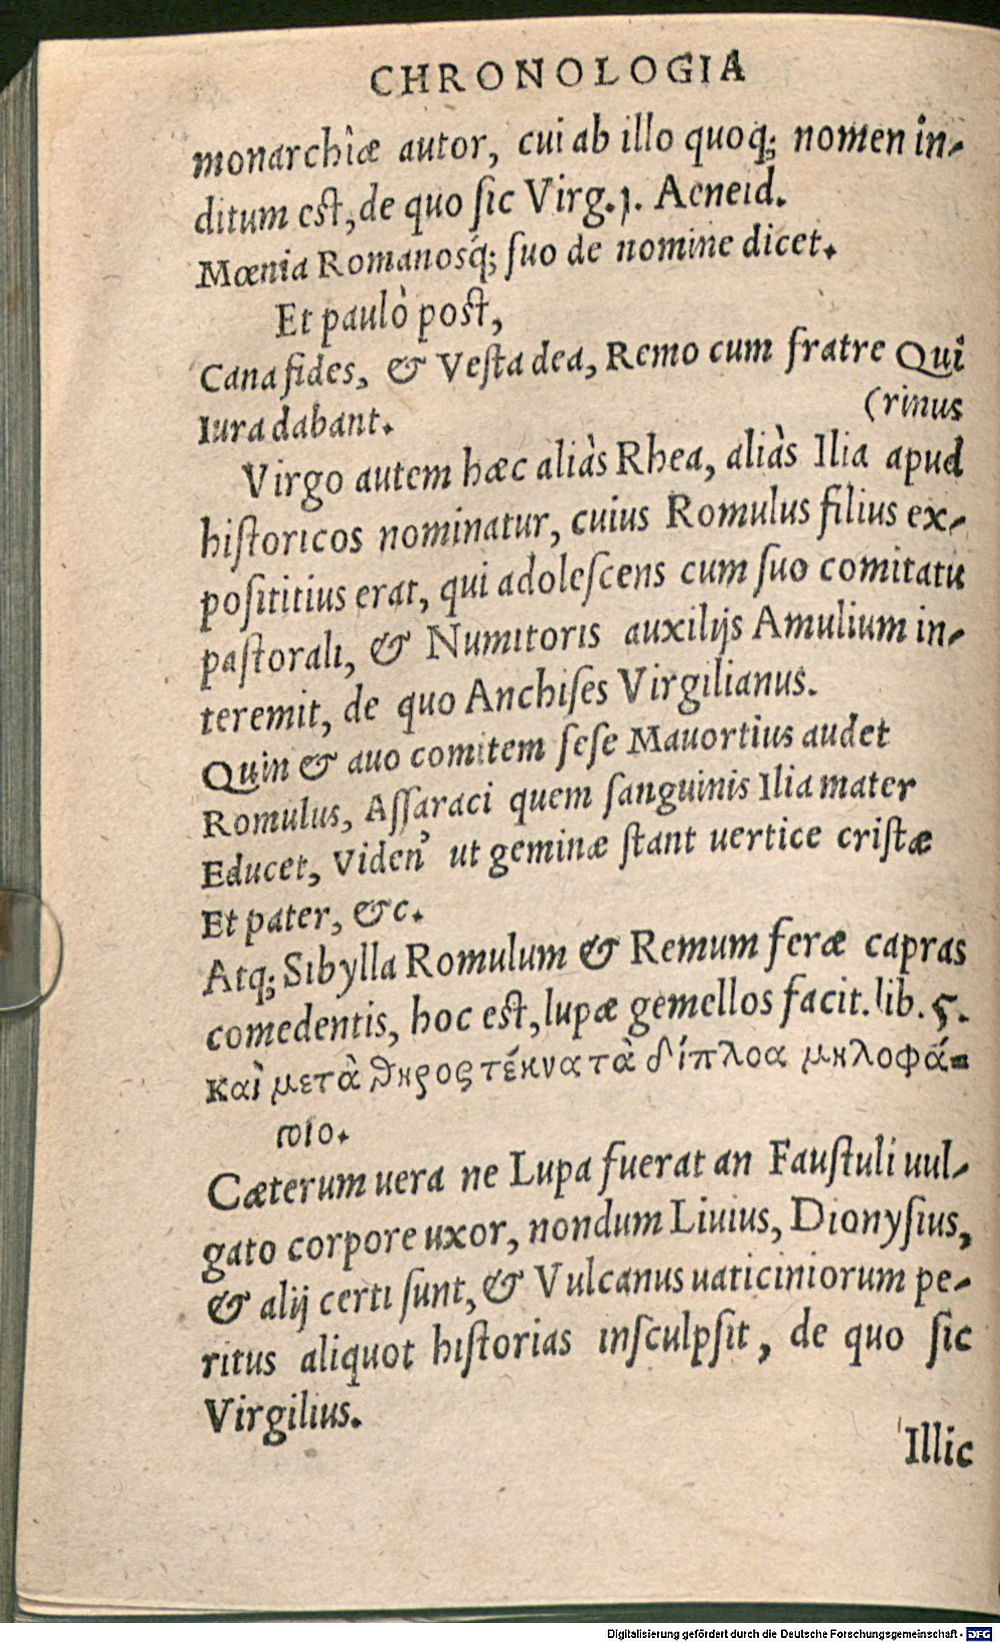 CHRONOLOGIA
monarchiæ autor, cui ab illo quoq; nomen in-
ditum eſt, de quo ſic Virg. 1. Aeneid.
Mœnia Romanosq́; ſuo de nomine dicet.
Et paulò poſt,
Cana fides, & Veſta dea, Remo cum fratre Qui
(rinus
Iura dabant.
Virgo autem hæc aliàs Rhea, aliàs Ilia apud
hiſtoricos nominatur, cuius Romulus filius ex-
poſititius erat, qui adoleſcens cum ſuo comitatu
paſtorali, & Numitoris auxilijs Amulium in-
teremit, de quo Anchiſes Virgilianus.
Quin & auo comitem ſeſe Mauortius audet
Romulus, Aſſaraci quem ſanguinis Ilia mater
Educet, Viden' ut geminæ ſtant uertice criſtæ
Et pater, &c.
Atq; Sibylla Romulum & Remum feræ capras
comedentis, hoc eſt, lupæ gemellos facit. lib. 5.
καὶ μετὰ θηρος τέκνα τὰ δίπλοα μηλοφά-
γοιο.
Cæterum uera ne Lupa fuerat an Fauſtuli uul-
gato corpore uxor, nondum Liuius, Dionyſius,
& alij certi ſunt, & Vulcanus uaticiniorum pe-
ritus aliquot hiſtorias inſculpſit, de quo ſic
Virgilius.
Illic
Digitalisierung gefördert durch die Deutsche Forschungsgemeinschaft - DFG